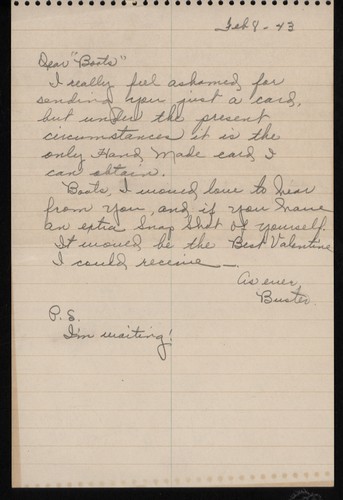 Feb 8 - 43
Dear "Boots"
I really feel ashamed, for
sending you just a card,
but under the present
circumstances it is the
only Hand Made card I
can obtain.
Boots, I would love to hear
from you, and if you have
an extra snap shot of yourself
It would be the Best Valentine
I could receive —
As ever,
Buster.
P.S.
I'm waiting!